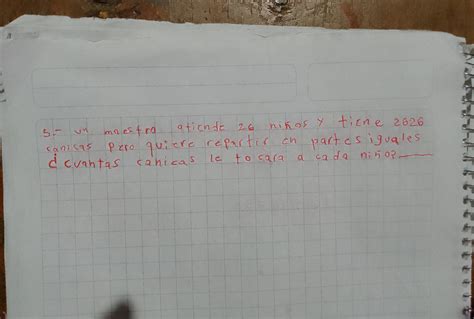 3.- un maestra atiende 26 niños y tiene 2626
canisas pero quiere repartir en partes iguales
¿cuantas canicas le tocara a cada niño?